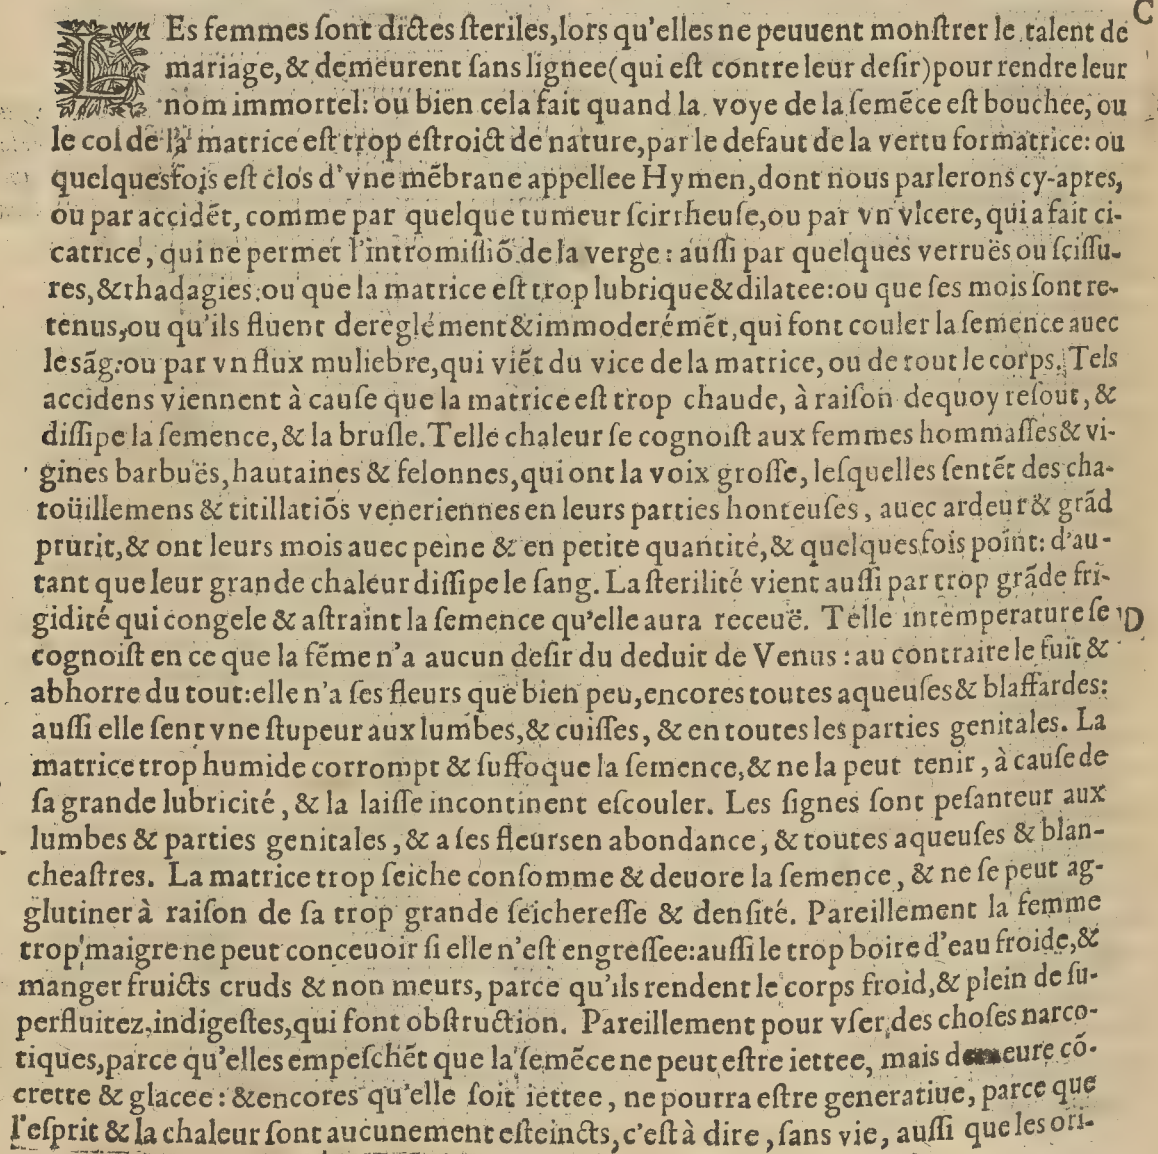 C
LEs femmes ſont dictes ſteriles, lors qu'elles ne peuuent monſtrer le talent de
mariage, & demeurent ſans lignee (qui eſt contre leur deſir) pour rendre leur
nom immortel: ou bien cela fait quand la voye de la ſemēce eſt bouchee, ou
le col de la matrice eſt trop eſtroict de nature, par le defaut de la vertu formatrice: ou
quelquesfois eſt clos d'vne mēbrane appellee Hymen, dont nous parlerons cy-apres,
ou par accidēt, comme par quelque tumeur ſcirrheuſe, ou par vn vlcere, qui a fait ci-
catrice, qui ne permet l'intromiſſiō de la verge: auſſi par quelques verruës ou ſciſſu-
res, & rhadagies: ou que la matrice eſt trop lubrique & dilatee: ou que ſes mois ſont re-
tenus, ou qu'ils fluent dereglément & immoderémēt, qui font couler la ſemence auec
le sāg: ou par vn flux muliebre, qui viēt du vice de la matrice, ou de tout le corps. Tels
accidens viennent à cauſe que la matrice eſt trop chaude, à raiſon dequoy reſout, &
diſſipe la ſemence, & la bruſle. Telle chaleur ſe cognoiſt aux femmes hommaſſes & vi-
gines barbuës, hautaines & felonnes, qui ont la voix groſſe, leſquelles ſentēt des cha-
toüillemens & titillatiōs veneriennes en leurs parties honteuſes, auec ardeur & grād
prurit, & ont leurs mois auec peine & en petite quantité, & quelquesfois point: d'au-
tant que leur grande chaleur diſſipe le ſang. La ſterilité vient auſſi par trop grāde fri-
gidité qui congele & aſtraint la ſemence qu'elle aura receuë. Telle intemperature ſe D
cognoiſt en ce que la fēme n'a aucun deſir du deduit de Venus: au contraire le fuit &
abhorre du tout: elle n'a ſes fleurs que bien peu, encores toutes aqueuſes & blaffardes:
auſſi elle ſent vne ſtupeur aux lumbes, & cuiſſes, & en toutes les parties genitales. La
matrice trop humide corrompt & ſuffoque la ſemence, & ne la peut tenir, à cauſe de
ſa grande lubricité, & la laiſſe incontinent eſcouler. Les ſignes ſont peſanteur aux
lumbes & parties genitales, & a ſes fleurs en abondance, & toutes aqueuſes & blan-
cheaſtres. La matrice trop ſeiche conſomme & deuore la ſemence, & ne ſe peut ag-
glutiner à raiſon de ſa trop grande ſeichereſſe & denſité. Pareillement la femme
trop maigre ne peut conceuoir ſi elle n'eſt engreſſee: auſſi le trop boire d'eau froide, &
manger fruicts cruds & non meurs, parce qu'ils rendent le corps froid, & plein de ſu-
perfluitez indigeſtes, qui font obſtruction. Pareillement pour vſer des choſes narco-
tiques, parce qu'elles empeſchēt que la ſemēce ne peut eſtre iettee, mais demeure cō-
crette & glacee: & encores qu'elle ſoit iettee, ne pourra eſtre generatiue, parce que
l'eſprit & la chaleur ſont aucunement eſteincts, c'eſt à dire, ſans vie, auſſi que les ori-